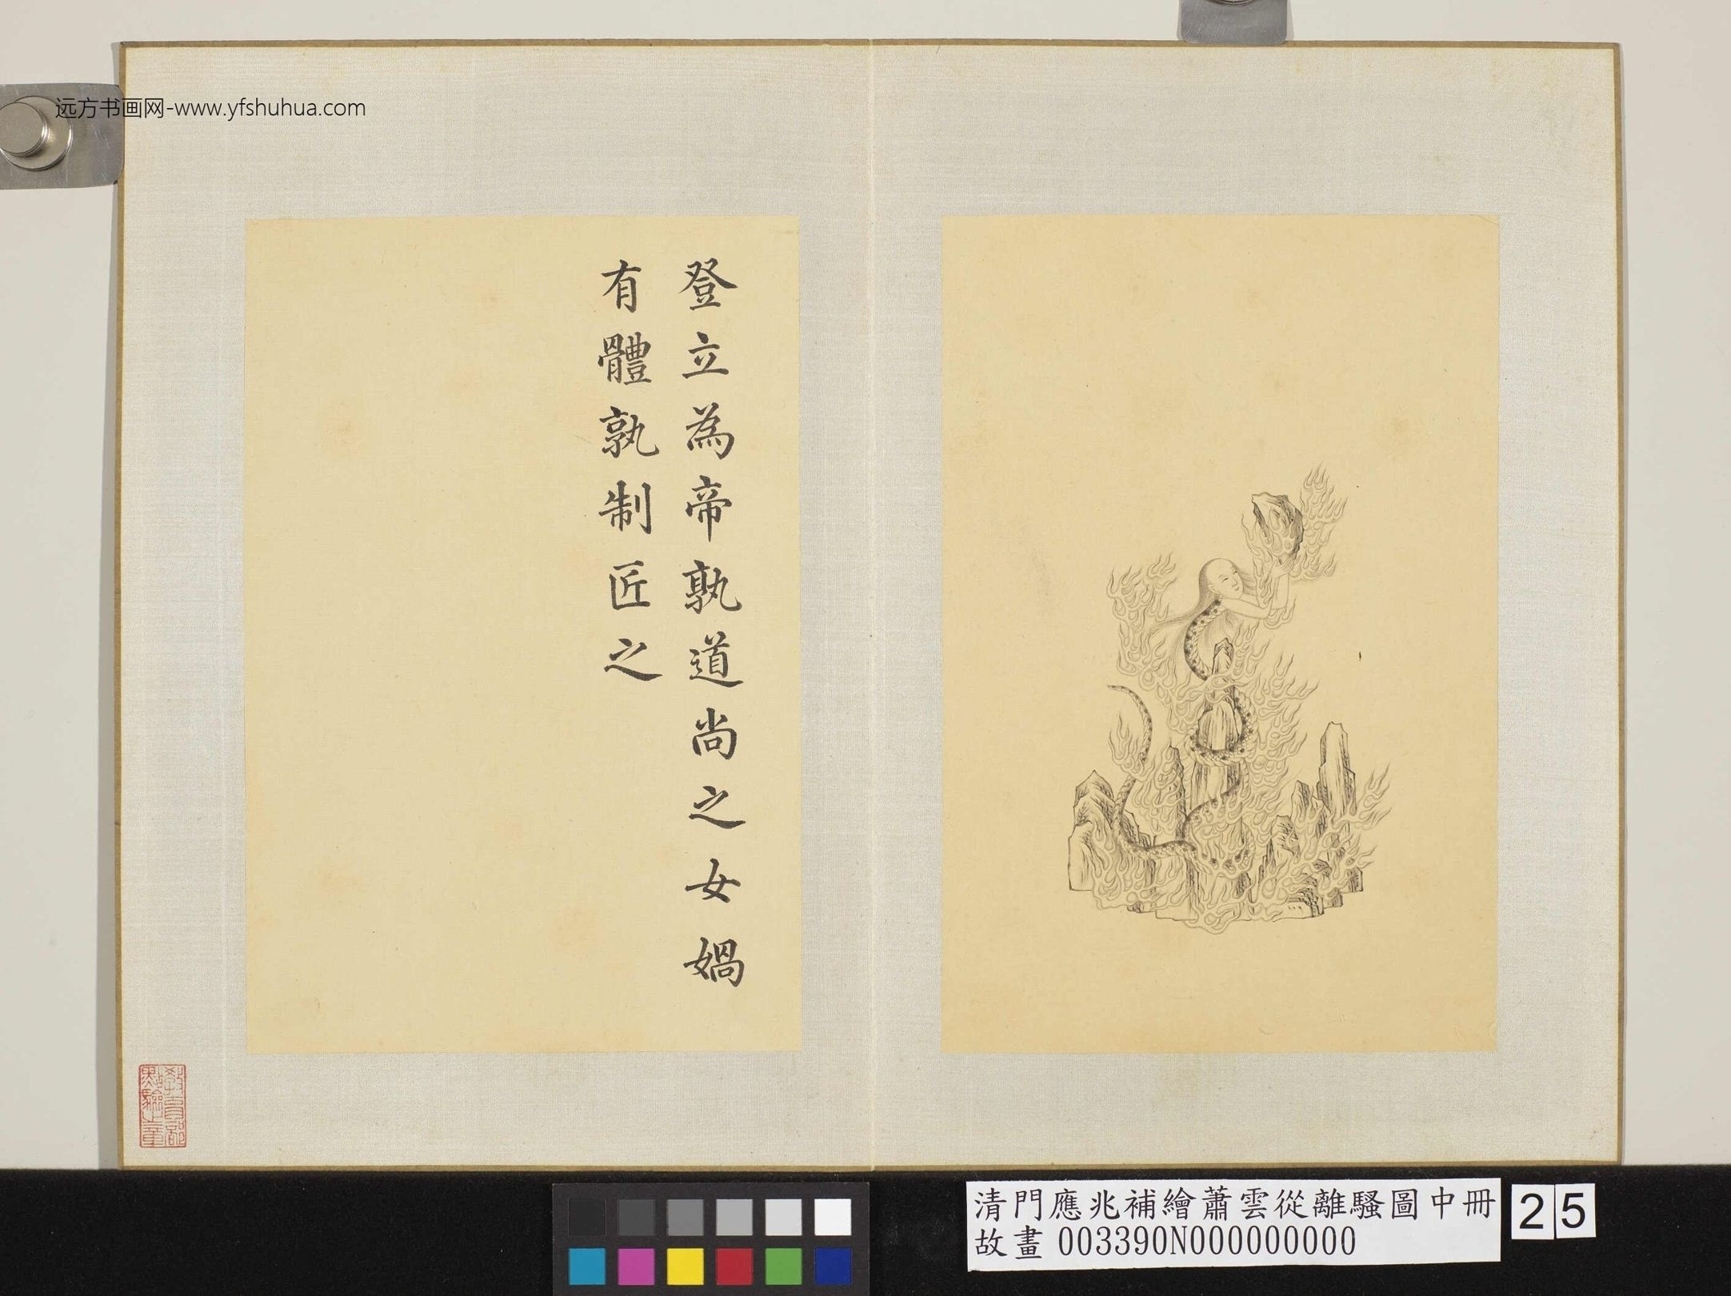 远方书画网-www.yfshuhua.com
登立為帝孰道尚之女媧
有體孰制匠之
教育部
點驗之章
清門應兆補繪蕭雲從離騷圖中冊
故畫003390N000000000
25